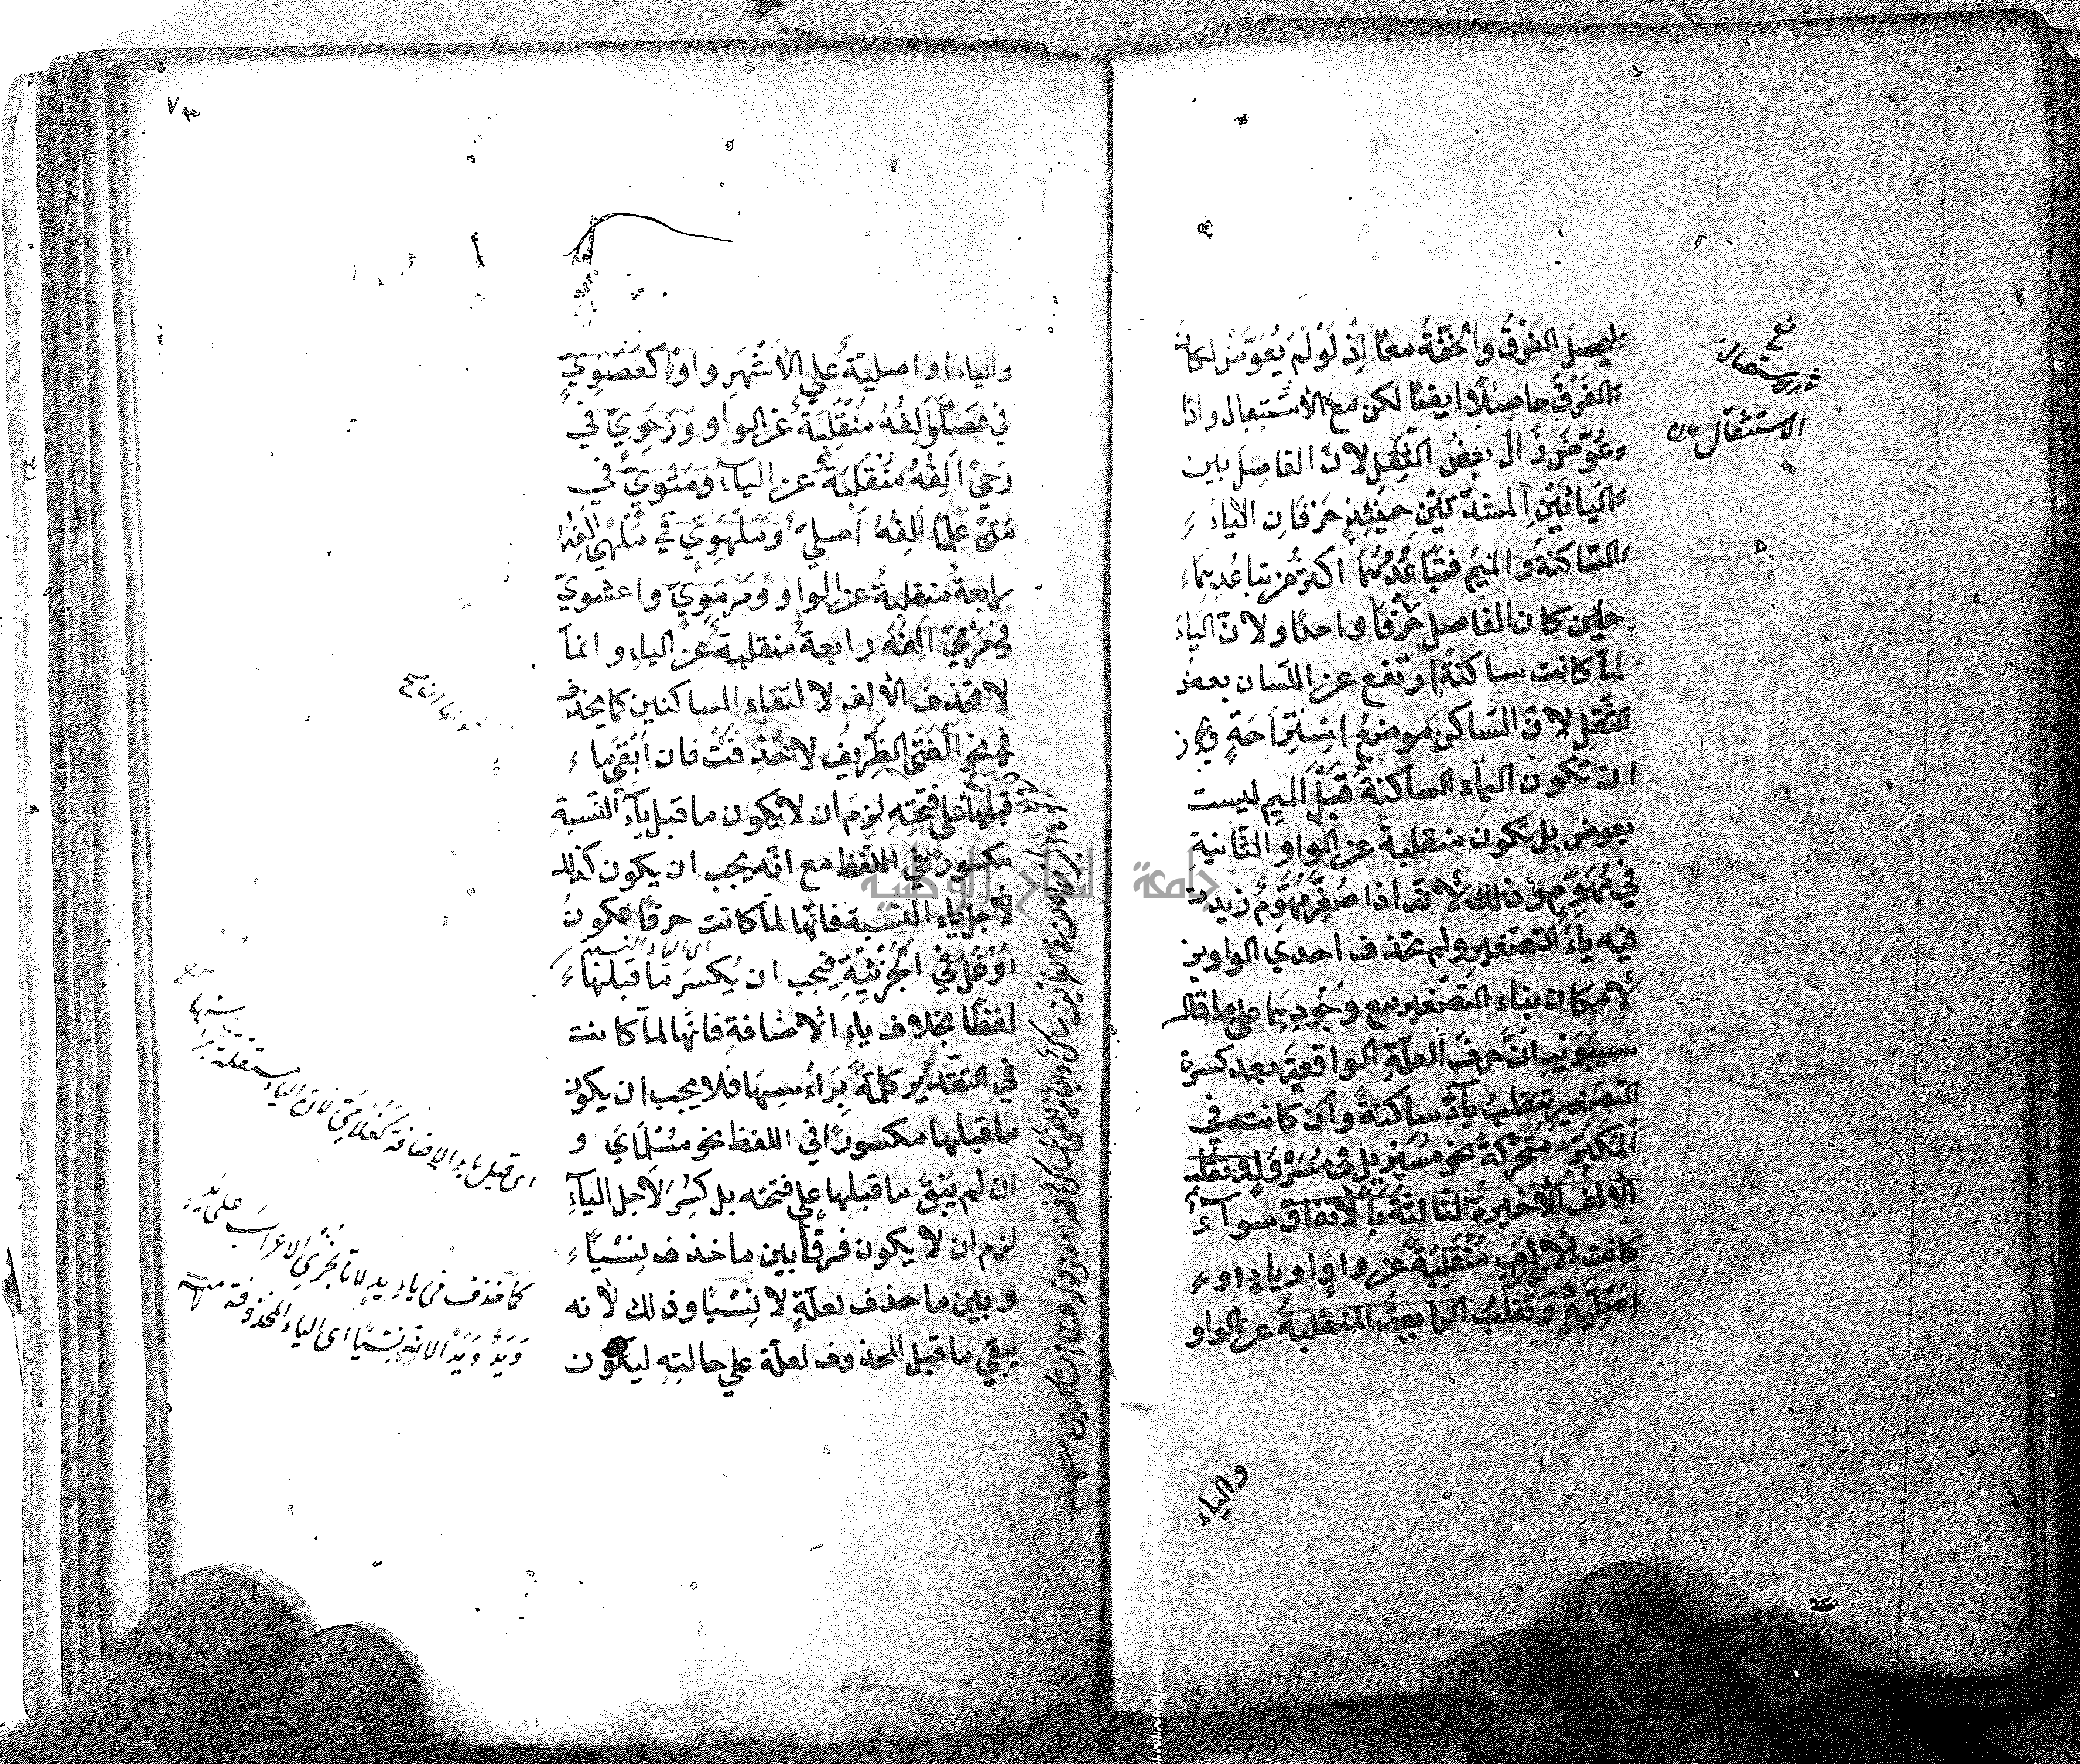 ليحصل الفَرْقُ والخفّة معًا اِذْ لَوْ لَمْ يُعَوَّضْ لكان
الفَرْقُ حاصِلاً ايضًا لكن مع الاستعمال واذا
عُوّض زال بعضُ الثِّقَلِ لانّ الفاصِلَ بين
اليائَيْنِ المشدّدتَيْنِ حينئذٍ حَرْفَانِ الياءُ
السّاكنةُ والميمُ فتَبَاعُدُهُمَا اكثرُ من تباعُدِهِمَا
حين كان الفاصل حَرْفًا واحدًا ولانّ الياءَ
لمّا كانت ساكنةً ارتفع عن اللّسان بعضُ
الثِّقَلِ لانّ السّاكنَ موضعُ اسْتِرَاحَةٍ
ان تكون الياء الساكنةُ قَبْلَ الميم ليست
بعوض بل تكونَ منقلبةً عن الواو الثّانيةِ
في مُهَوِّمٍ وذلك لأنّه اذا صُغِّرَ مُهَوِّمٌ زيدت
فيه ياءُ التصغيرِ ولم تحذف احدي الواوين
لامكان بناء التصغير مع وُجُودِهِمَا علي ما قال
سيبَوَيْهِ انّ حرفَ العلّةِ الواقعةَ بعد كسرة
التصغيرِ تنقلبُ ياءً ساكنةً وان كانت في
المكبّرِ متحرّكةً نحو مُسَيْرِيل في مُسَرْوَلٍ وتقلب
الألفُ الأخيرةُ الثالثةُ بالاتفاق سوآءٌ
كانت الألف مُنْقَلِبَةً عن واوٍ او ياءٍ او
اصْلِيَّةً وَتقلبُ الرابعةُ المنقلبةُ عن الواو
والياء
نخ
الاستعمال
الاستثقال
والياء او اصليّةٌ علي الأشْهَرِ واوًا كعَصَوِيٍّ
في عَصًا وَاَلِفُهُ مُنْقَلِبَةٌ عن الواو وَرَحَوِيّ في
رَحيً اَلِفُهُ مُنْقَلِبَةٌ عن الياء ومَتَوِيٍّ في
مَتَيً عَلَمًا اَلِفُهُ اصليّةٌ وَمَلْهَوِيّ في مَلْهًي اَلِفُهُ
رابعةٌ منقلبةٌ عن الواو وَمَرْمَوِيّ واعشويّ
في مَرْمًيّ اَلِفُهُ رابعةٌ مُنقلبةٌ عن الياءِ وانمآ
لا تحذف الألف لالتقاء الساكنين كما يحذف
في نحو اَلْفَتَى الظّرِيفُ لو حُذِفَتْ فان اُبْقِيَ ما
قبلها علي فتحتِهِ لَزِمَ ان لا يكون ما قبل يآءِ النّسبةِ
مكسورًا في اللّفظ مع انّه يجب ان يكون كذلك
لأجل ياءِ النّسبة فانّها لمّا كانت حرفًا تكونُ
اَوْغَلَ في الجُزْئِيَّةِ فيجب ان يُكسَرَ ما قبلَهَا
لفظًا بخلاف ياءِ الاضافةِ فانّها لمّا كانت
في التقدير كلمةً بِرَأْسِهَا فلا يجب ان يكون
ما قبلها مكسورًا في اللفظ نحو مُسْلِمَايَ و
ان لم يَبْقَ ما قبلها علي فتحته بل كُسِرَ لأجل اليآءِ
لزم ان لا يكون فرقًا بين ما حُذف نَسْيًا
وبين ما حذف لعلّةٍ لا نَسْيًا وذلك لأنه
يبقي ما قبل المحذوف لعلّة علي حالتِهِ ليكون
اى الياء النسبة
اى قبل ياء الاضافة كغلامى لان الياء مستقلة برأسها
كما حذف من ياء يد لانا نجرى الاعراب على يد
وَيَدٌ وَيَدًا لانّه نسيًا اى الياء المحذوفة منه
جامعة النجاح الوطنية